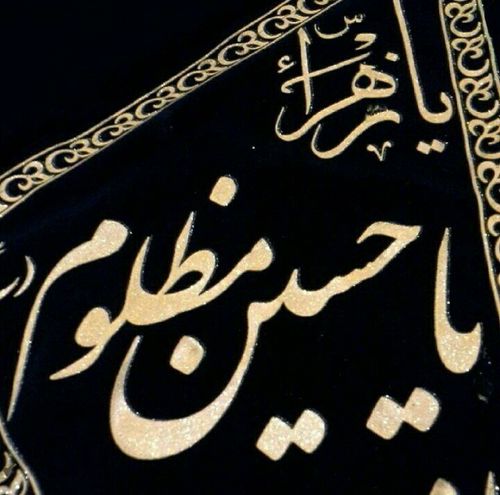 یا زهراء س
یا حسین مظلوم